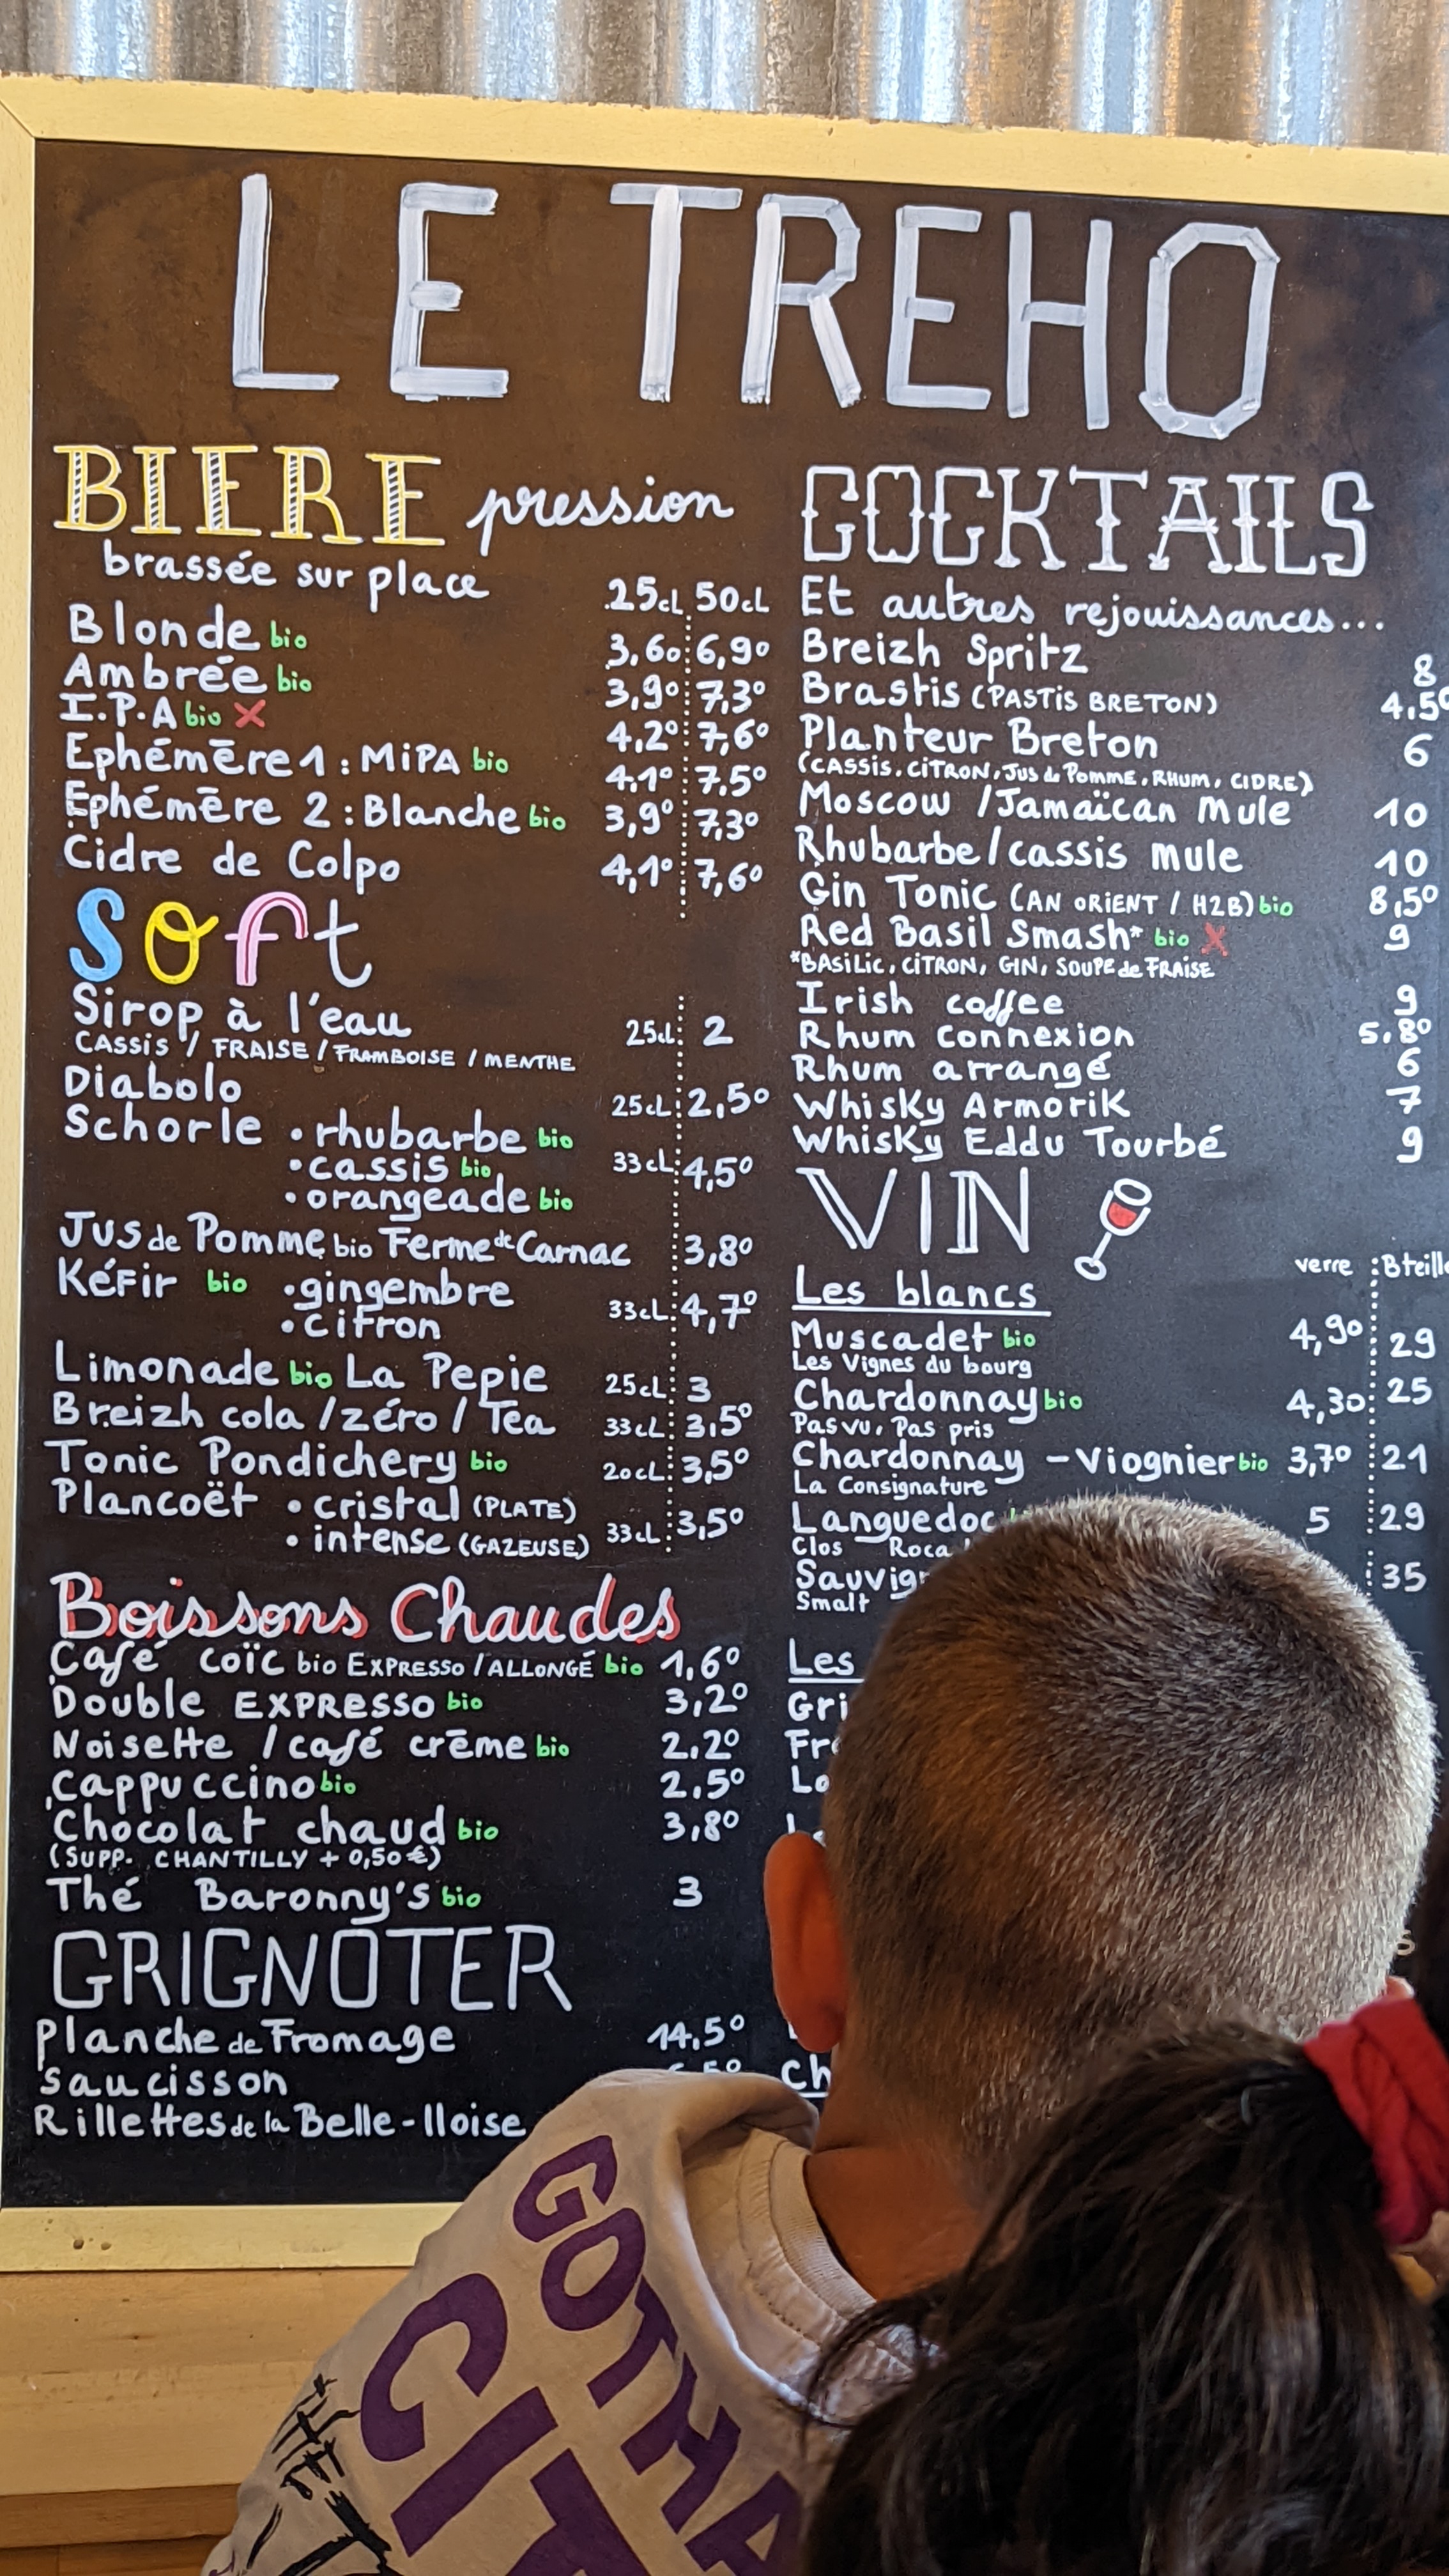 LE TREHO
BIERE pression
brassée sur place
25cL 50cL
Blonde bio 3,60 6,90
Ambrée bio 3,90 7,30
I.P.A bio X 4,20 7,60
Ephémēre 1 : MiPA bio 4,10 7,50
Ephémēre 2 : Blanche bio 3,90 7,30
Cidre de Colpo 4,10 7,60
Soft
Sirop à l'eau 25cl 2
CASSiS / FRAISE / FRAMBOISE / MENTHE
Diabolo 25cL 2,50
Schorle • rhubarbe bio
• cassis bio 33cL 4,50
• orangeade bio
Jus de Pomme bio Ferme de Carnac 3,80
KéFir bio • gingembre
• citron 33cL 4,70
Limonade bio La Pepie 25cL 3
Breizh cola / zéro / Tea 33cL 3,50
Tonic Pondichery bio 20cL 3,50
Plancoët • cristal (PLATE)
• intense (GAZEUSE) 33cL 3,50
Boissons Chaudes
Café coïc bio EXPRESSO / ALLONGÉ bio 1,60
Double EXPRESSO bio 3,20
Noisette / café crēme bio 2.20
Cappuccino bio 2.50
Chocolat chaud bio 3,80
(SUPP. CHANTILLY + 0,50 €)
Thé Baronny's bio 3
GRIGNOTER
Planche de Fromage 14,50
Saucisson
Rillettes de la Belle-Iloise
COCKTAILS
Et autres rejouissances...
Breizh Spritz 8
Brastis (PASTIS BRETON) 4.50
Planteur Breton 6
(CASSiS, CiTRON, Jus de Pomme, RHUM, CIDRE)
Moscow / Jamaïcan Mule 10
Rhubarbe / cassis Mule 10
Gin Tonic (AN ORiENT / H2B) bio 8,50
Red Basil Smash* bio X 9
*BASiLic, CiTRON, GIN, SOUPE de FRAiSE
Irish coffee 9
Rhum connexion 5,80
Rhum arrangé 6
Whisky Armorik 7
Whisky Eddu Tourbé 9
VIN
verre : Bteille
Les blancs
Muscadet bio 4,90 29
Les Vignes du bourg
Chardonnay bio 4,30 25
Pas vu, Pas pris
Chardonnay - Viognier bio 3,70 21
La Consignature
Languedoc 5 29
Clos Roca
Sauvig 35
Smalt
Les
Gri
Fr
Lo
Ch
GOTHA
CIT